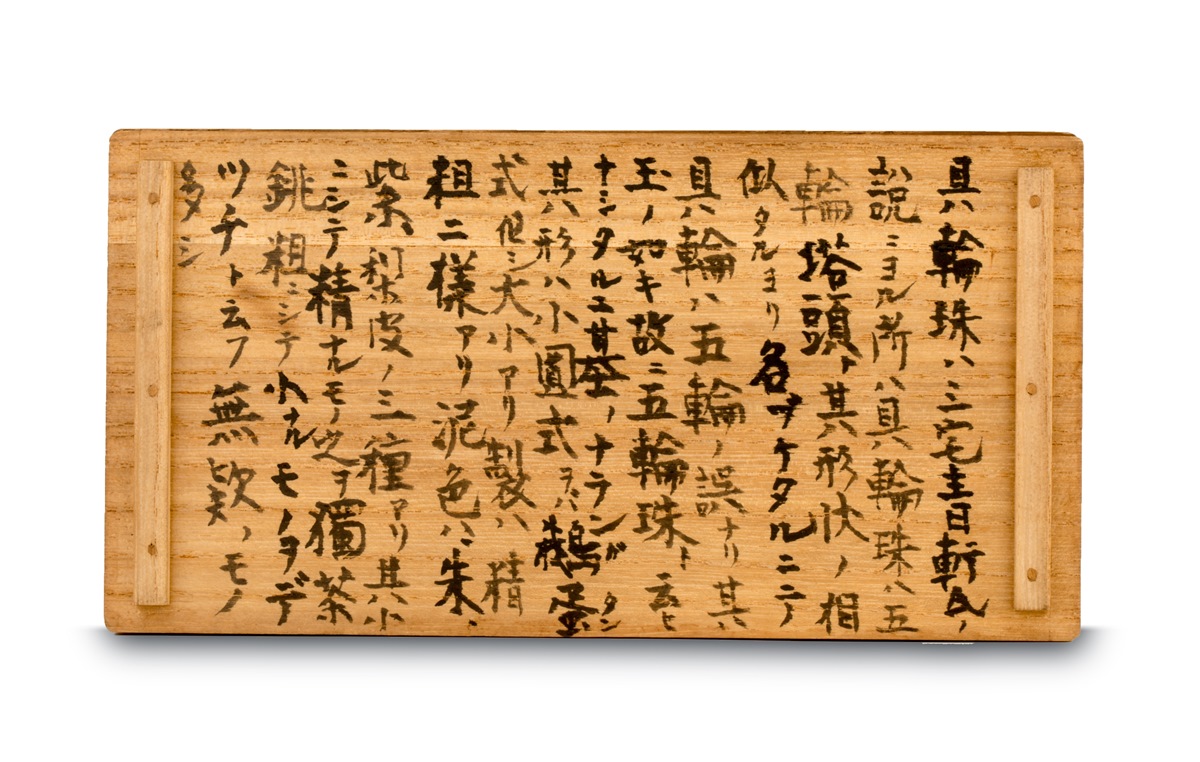 具輪珠ハ三宅圭日軒氏ノ
説ニヨル所ハ具輪珠ハ五
輪塔頭ト其形状ノ相
似タルヨリ名ヅケタルニテ
具輪ハ五輪ノ誤ナリ其
玉ノ如キ故ニ五輪珠ト云ヒ
ナシタルニ甘
其形ハ小圓式
式但シ大小アリ製ハ精
粗ニ様アリ泥色ハ朱、
紫、梨皮ノ三種アリ其小
ニシテ精ナルモノ之ヲ獨茶
銚粗ニシテ小ナルモノヲデ
ツチト云フ無欵ノモノ
多シ